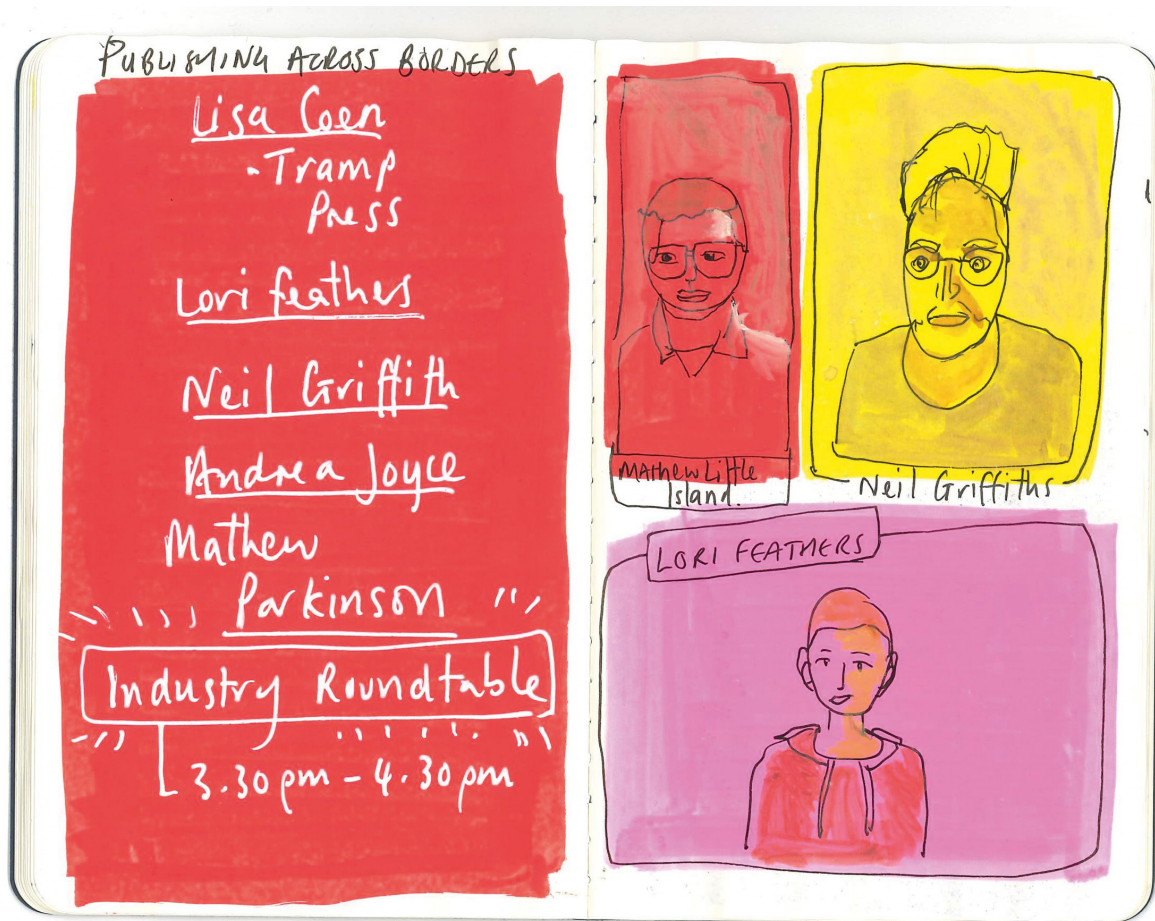 PUBLISHING ACROSS BORDERS
Lisa Coen
-Tramp
Press
Lori feathers
Neil Griffith
Andrea Joyce
Mathew
Parkinson
Industry Roundtable
3.30pm - 4.30pm
MAthew Little
Island.
Neil Griffiths
LORI FEATHERS